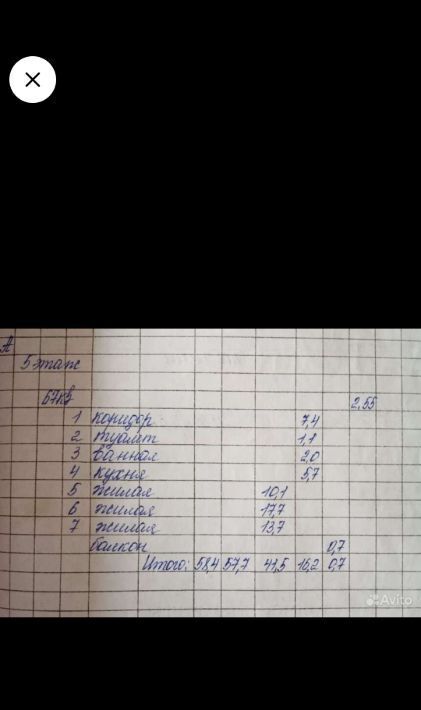 А
5 этаж
67кв
2,55
1 коридор 7,4
2 туалет 1,1
3 ванная 2,0
4 кухня 5,7
5 жилая 10,1
6 жилая 17,7
7 жилая 13,7
балкон 0,7
Итого: 58,4 57,7 41,5 16,2 0,7
Avito